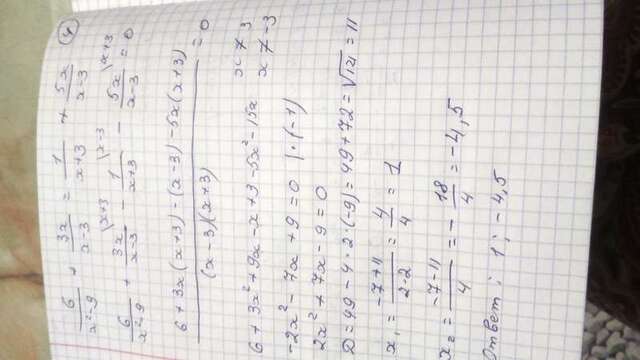 4
6/(x²-9) + 3x/(x-3) = 1/(x+3) + 5x/(x-3)
6/(x²-9) + 3x/(x-3) \x+3 - 1/(x+3) \x-3 - 5x/(x-3) \x+3 = 0
(6+3x(x+3)-(x-3)-5x(x+3))/((x-3)(x+3)) = 0
6+3x²+9x-x+3-5x²-15x x≠3
x≠-3
-2x²-7x+9=0 |·(-1)
2x²+7x-9=0
D=49-4·2·(-9)=49+72=√121=11
x₁=(-7+11)/(2·2)=4/4=1
x₂=(-7-11)/4=-18/4=-4,5
Ответ: 1; -4,5